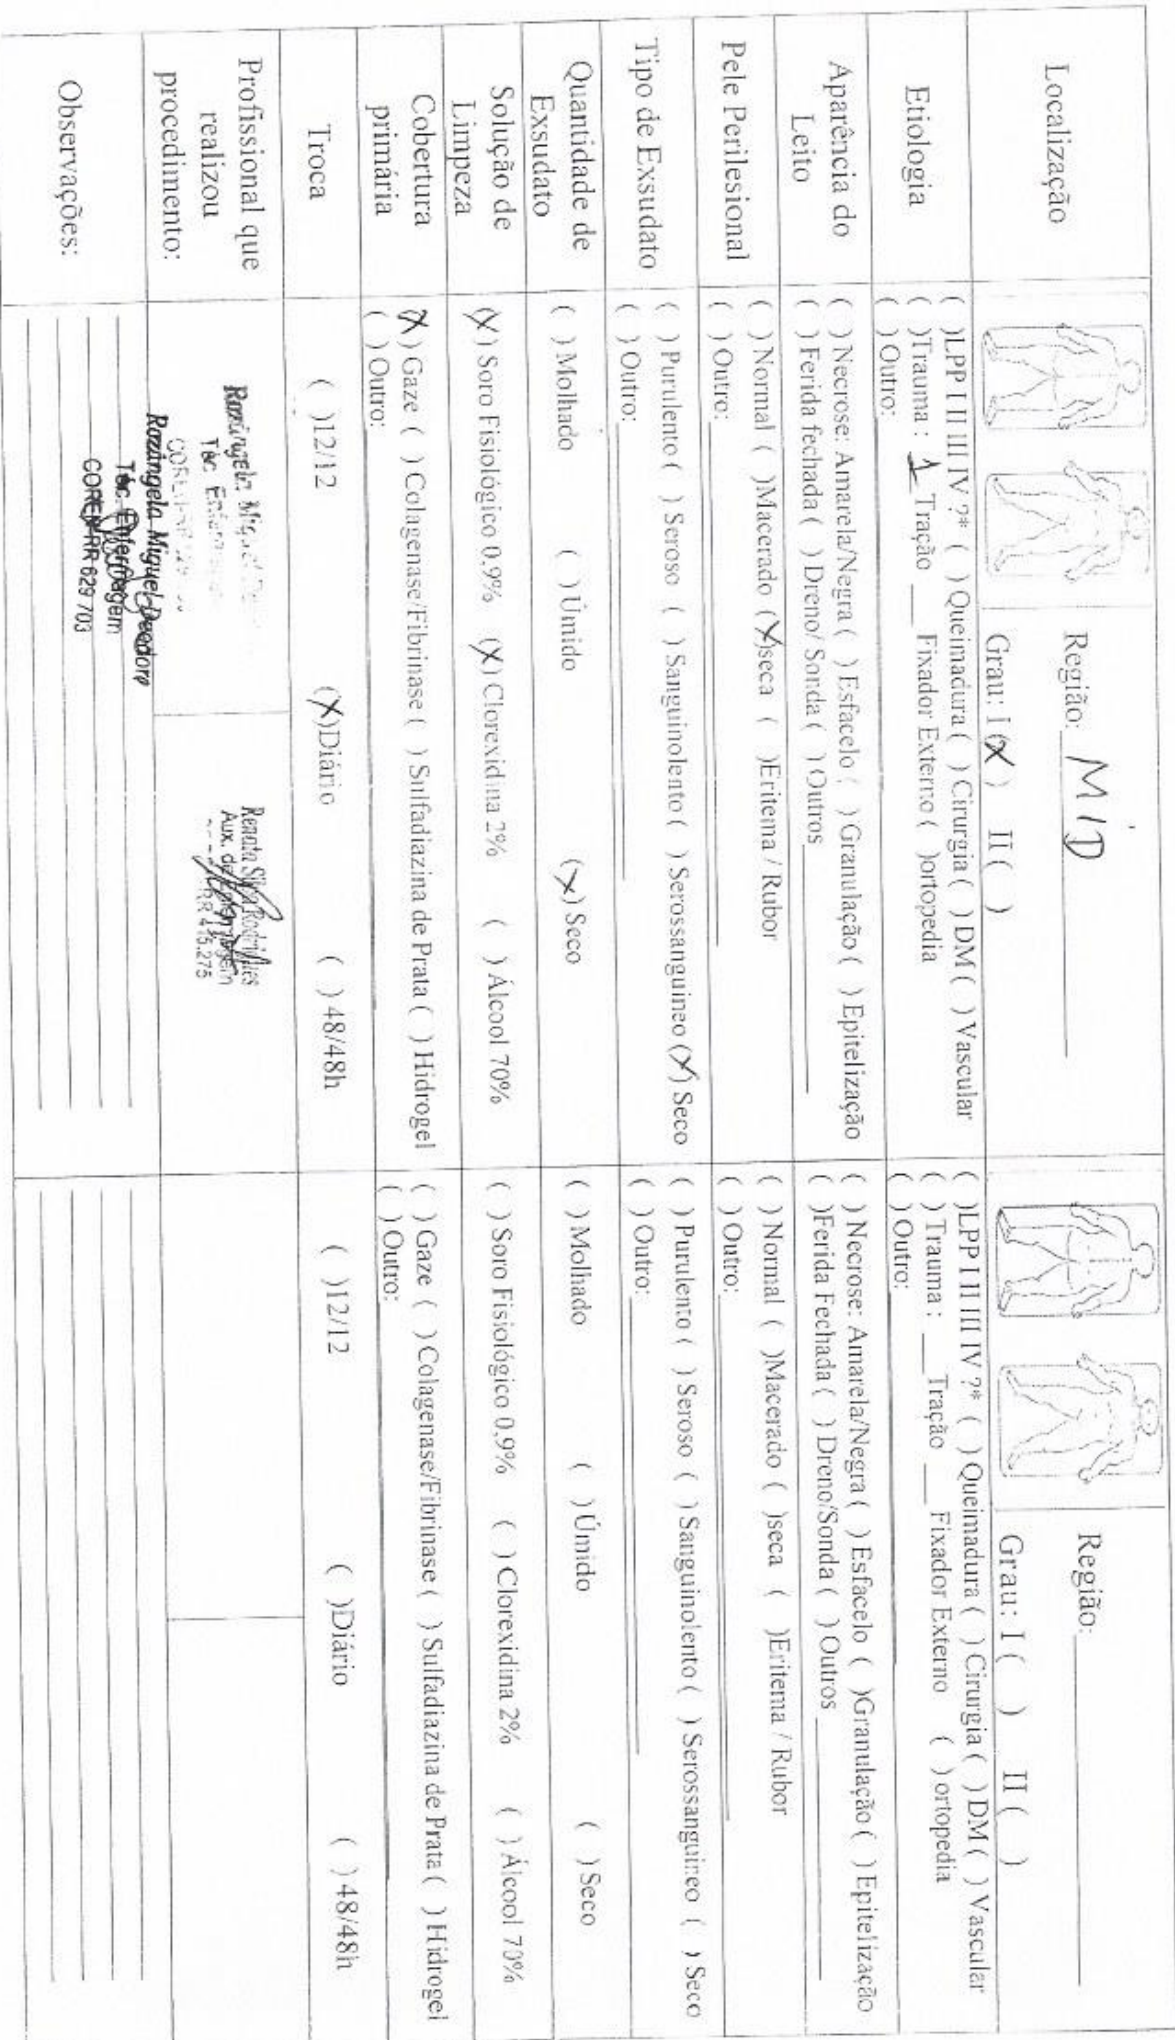 Localização
Região: MID
Grau: I (X) II ( )
Região:
Grau: I ( ) II ( )
Etiologia
( )LPP I II III IV ?* ( ) Queimadura ( ) Cirurgia ( ) DM ( ) Vascular
( )Trauma : 1 Tração ___ Fixador Externo ( )ortopedia
( ) Outro:
( )LPP I II III IV ?* ( ) Queimadura ( ) Cirurgia ( ) DM ( ) Vascular
( ) Trauma : ___ Tração ___ Fixador Externo ( ) ortopedia
( ) Outro:
Aparência do
Leito
( ) Necrose: Amarela/Negra ( ) Esfacelo ( ) Granulação ( ) Epitelização
( ) Ferida fechada ( ) Dreno/ Sonda ( ) Outros
( ) Necrose: Amarela/Negra ( ) Esfacelo ( )Granulação ( ) Epitelização
( )Ferida Fechada ( ) Dreno/Sonda ( ) Outros
Pele Perilesional
( ) Normal ( )Macerado (X)seca ( )Eritema / Rubor
( ) Outro:
( ) Normal ( )Macerado ( )seca ( )Eritema / Rubor
( ) Outro:
Tipo de Exsudato
( ) Purulento ( ) Seroso ( ) Sanguinolento ( ) Serossanguineo (X) Seco
( ) Outro:
( ) Purulento ( ) Seroso ( ) Sanguinolento ( ) Serossanguineo ( ) Seco
( ) Outro:
Quantidade de
Exsudato
( ) Molhado ( ) Úmido (X) Seco
( ) Molhado ( ) Úmido ( ) Seco
Solução de
Limpeza
(X) Soro Fisiológico 0.9% (X) Clorexidina 2% ( ) Álcool 70%
( ) Soro Fisiológico 0.9% ( ) Clorexidina 2% ( ) Álcool 70%
Cobertura
primária
(X) Gaze ( ) Colagenase/Fibrinase ( ) Sulfadiazina de Prata ( ) Hidrogel
( ) Outro:
( ) Gaze ( ) Colagenase/Fibrinase ( ) Sulfadiazina de Prata ( ) Hidrogel
( ) Outro:
Troca
( )12/12 (X)Diário ( ) 48/48h
( )12/12 ( )Diário ( ) 48/48h
Profissional que
realizou
procedimento:
Rozângela Miguel
Téc. Enfermagem
Rozângela Miguel Deodoro
Téc. Enfermagem
COREN-RR 629 703
Renata Silva Rodrigues
Aux. de Enfermagem
RR 415.275
Observações: